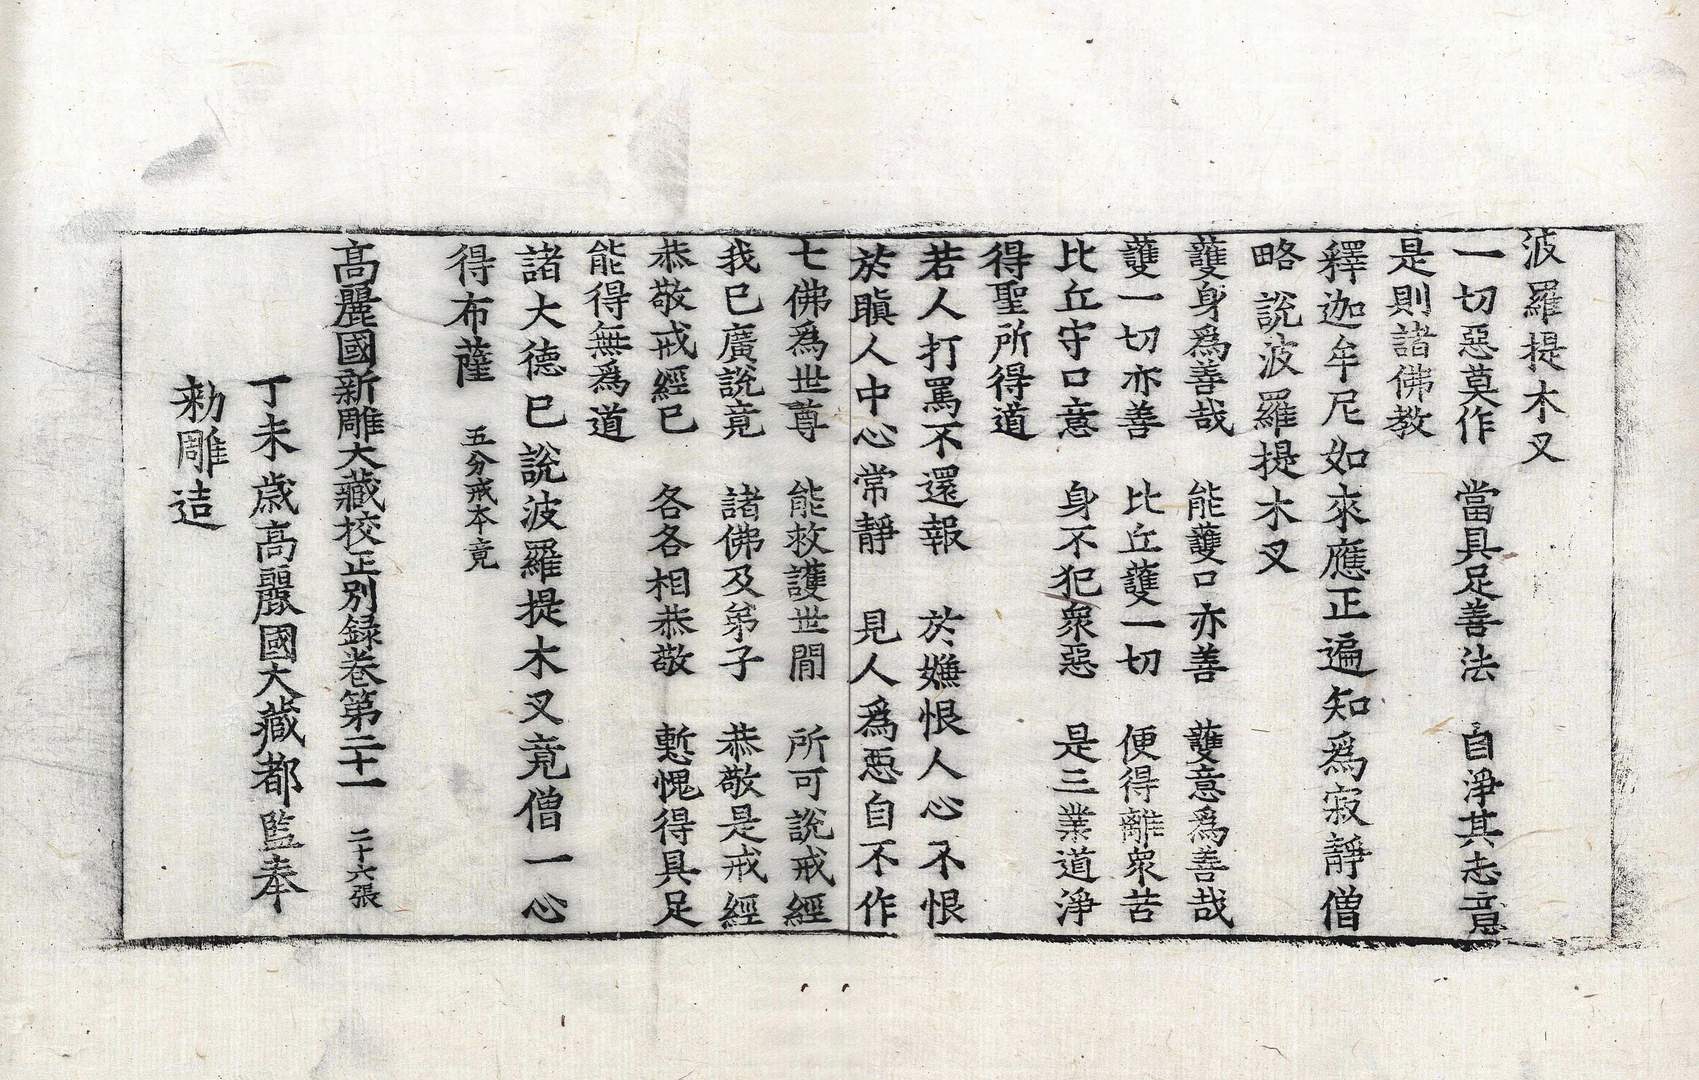 波羅提木叉
一切惡莫作　當具足善法　自淨其志意
是則諸佛教
釋迦牟尼如來應正遍知爲寂靜僧
略說波羅提木叉
護身爲善哉　能護口亦善　護意爲善哉
護一切亦善　比丘護一切　便得離衆苦
比丘守口意　身不犯衆惡　是三業道淨
得聖所得道
若人打罵不還報　於嫌恨人心不恨
於瞋人中心常靜　見人爲惡自不作
七佛爲世尊　能救護世間　所可說戒經
我已廣說竟　諸佛及弟子　恭敬是戒經
恭敬戒經已　各各相恭敬　慙愧得具足
能得無爲道
諸大德已說波羅提木叉竟僧一心
得布薩　五分戒本竟
高麗國新雕大藏校正別録卷第二十一　二十六張
丁未歲高麗國大藏都監奉
勅雕造